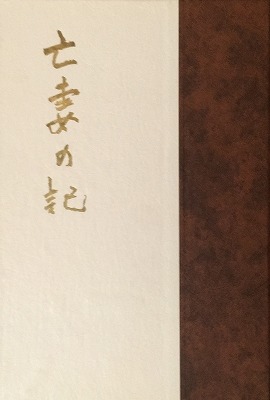 亡妻の記